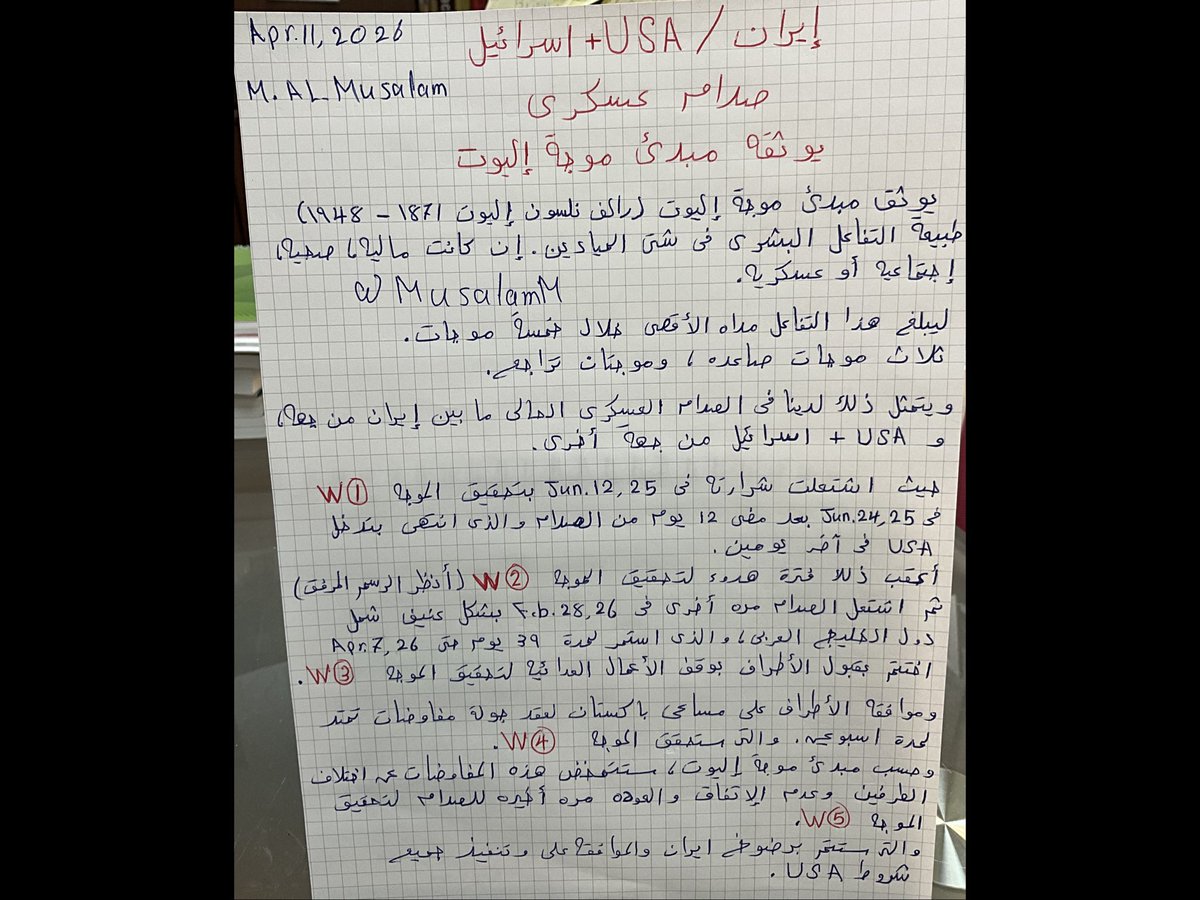 Apr.11,2026
M. AL Musalam
إيران / USA + اسرائيل
صدام عسكرى
يوثقه مبدئ موجة إليوت
يوثق مبدئ موجة إليوت (رالف نلسون إليوت 1871 - ١٩٤٨)
طبيعة التفاعل البشرى فى شتى الميادين. إن كانت مالية، صحية،
إجتماعية أو عسكرية.
@ MusalamM
ليبلغ هذا التفاعل مداه الأقصى خلال خمسة موجات.
ثلاث موجات صاعده، وموجتان تراجع.
ويتمثل ذلك لدينا فى الصدام العسكرى الحالى ما بين إيران من جهة،
و USA + اسرائيل من جهة أخرى.
حيث اشتعلت شرارته فى Jun.12,25 بتحقيق الموجه W①
فى Jun.24,25 بعد مضى 12 يوم من الصدام والذى انتهى بتدخل
USA فى آخر يومين.
أعقب ذلك فترة هدوء لتحقيق الموجه W② (أنظر الرسم المرفق)
ثم اشتعل الصدام مره أخرى فى F.b.28,26 بشكل عنيف شمل
دول الخليج العربى، والذى استمر لمدة 39 يوم حتى Apr.7,26
اختتم بقبول الأطراف بوقف الأعمال العدائية لتحقيق الموجه W③.
وموافقة الأطراف على مساعى باكستان لعقد جولة مفاوضات تمتد
لمدة اسبوعين. والتى ستحقق الموجه W④.
وحسب مبدئ موجة إليوت، ستتمخض هذه المفاوضات عن اختلاف
الطرفين وعدم الإتفاق والعوده مره أخيره للصدام لتحقيق
الموجه W⑤.
والتى ستنتهى برضوخ ايران والموافقة على وتنفيذ جميع
شروط USA.